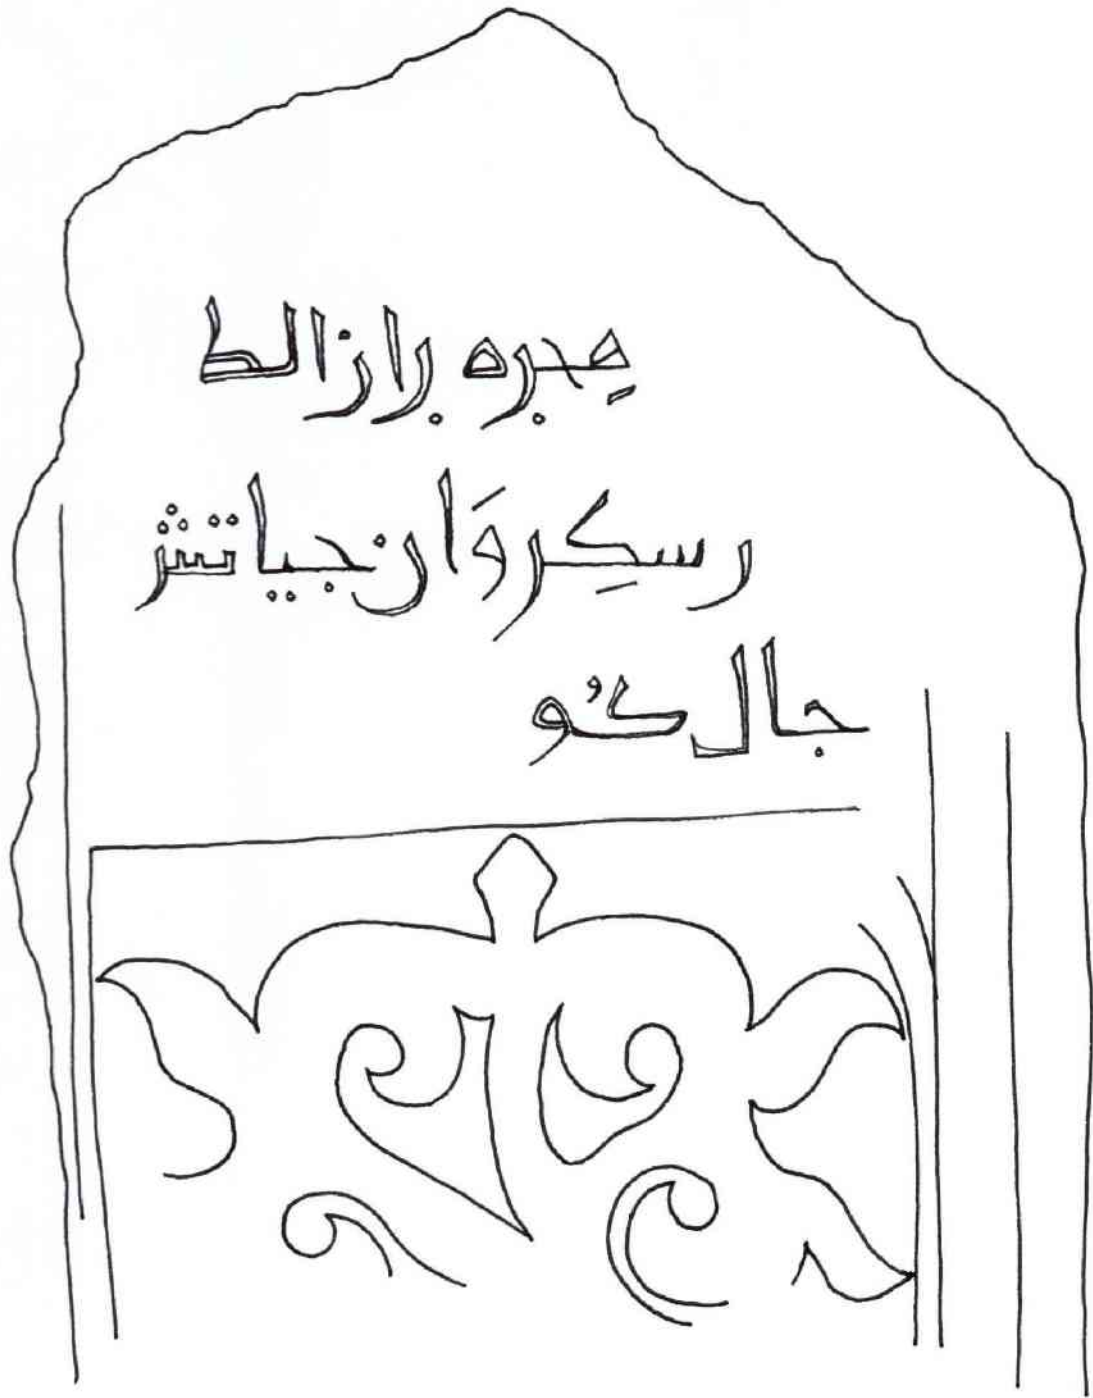 هِجره برازالط
رسكِروَان جياتشر
جال كُو